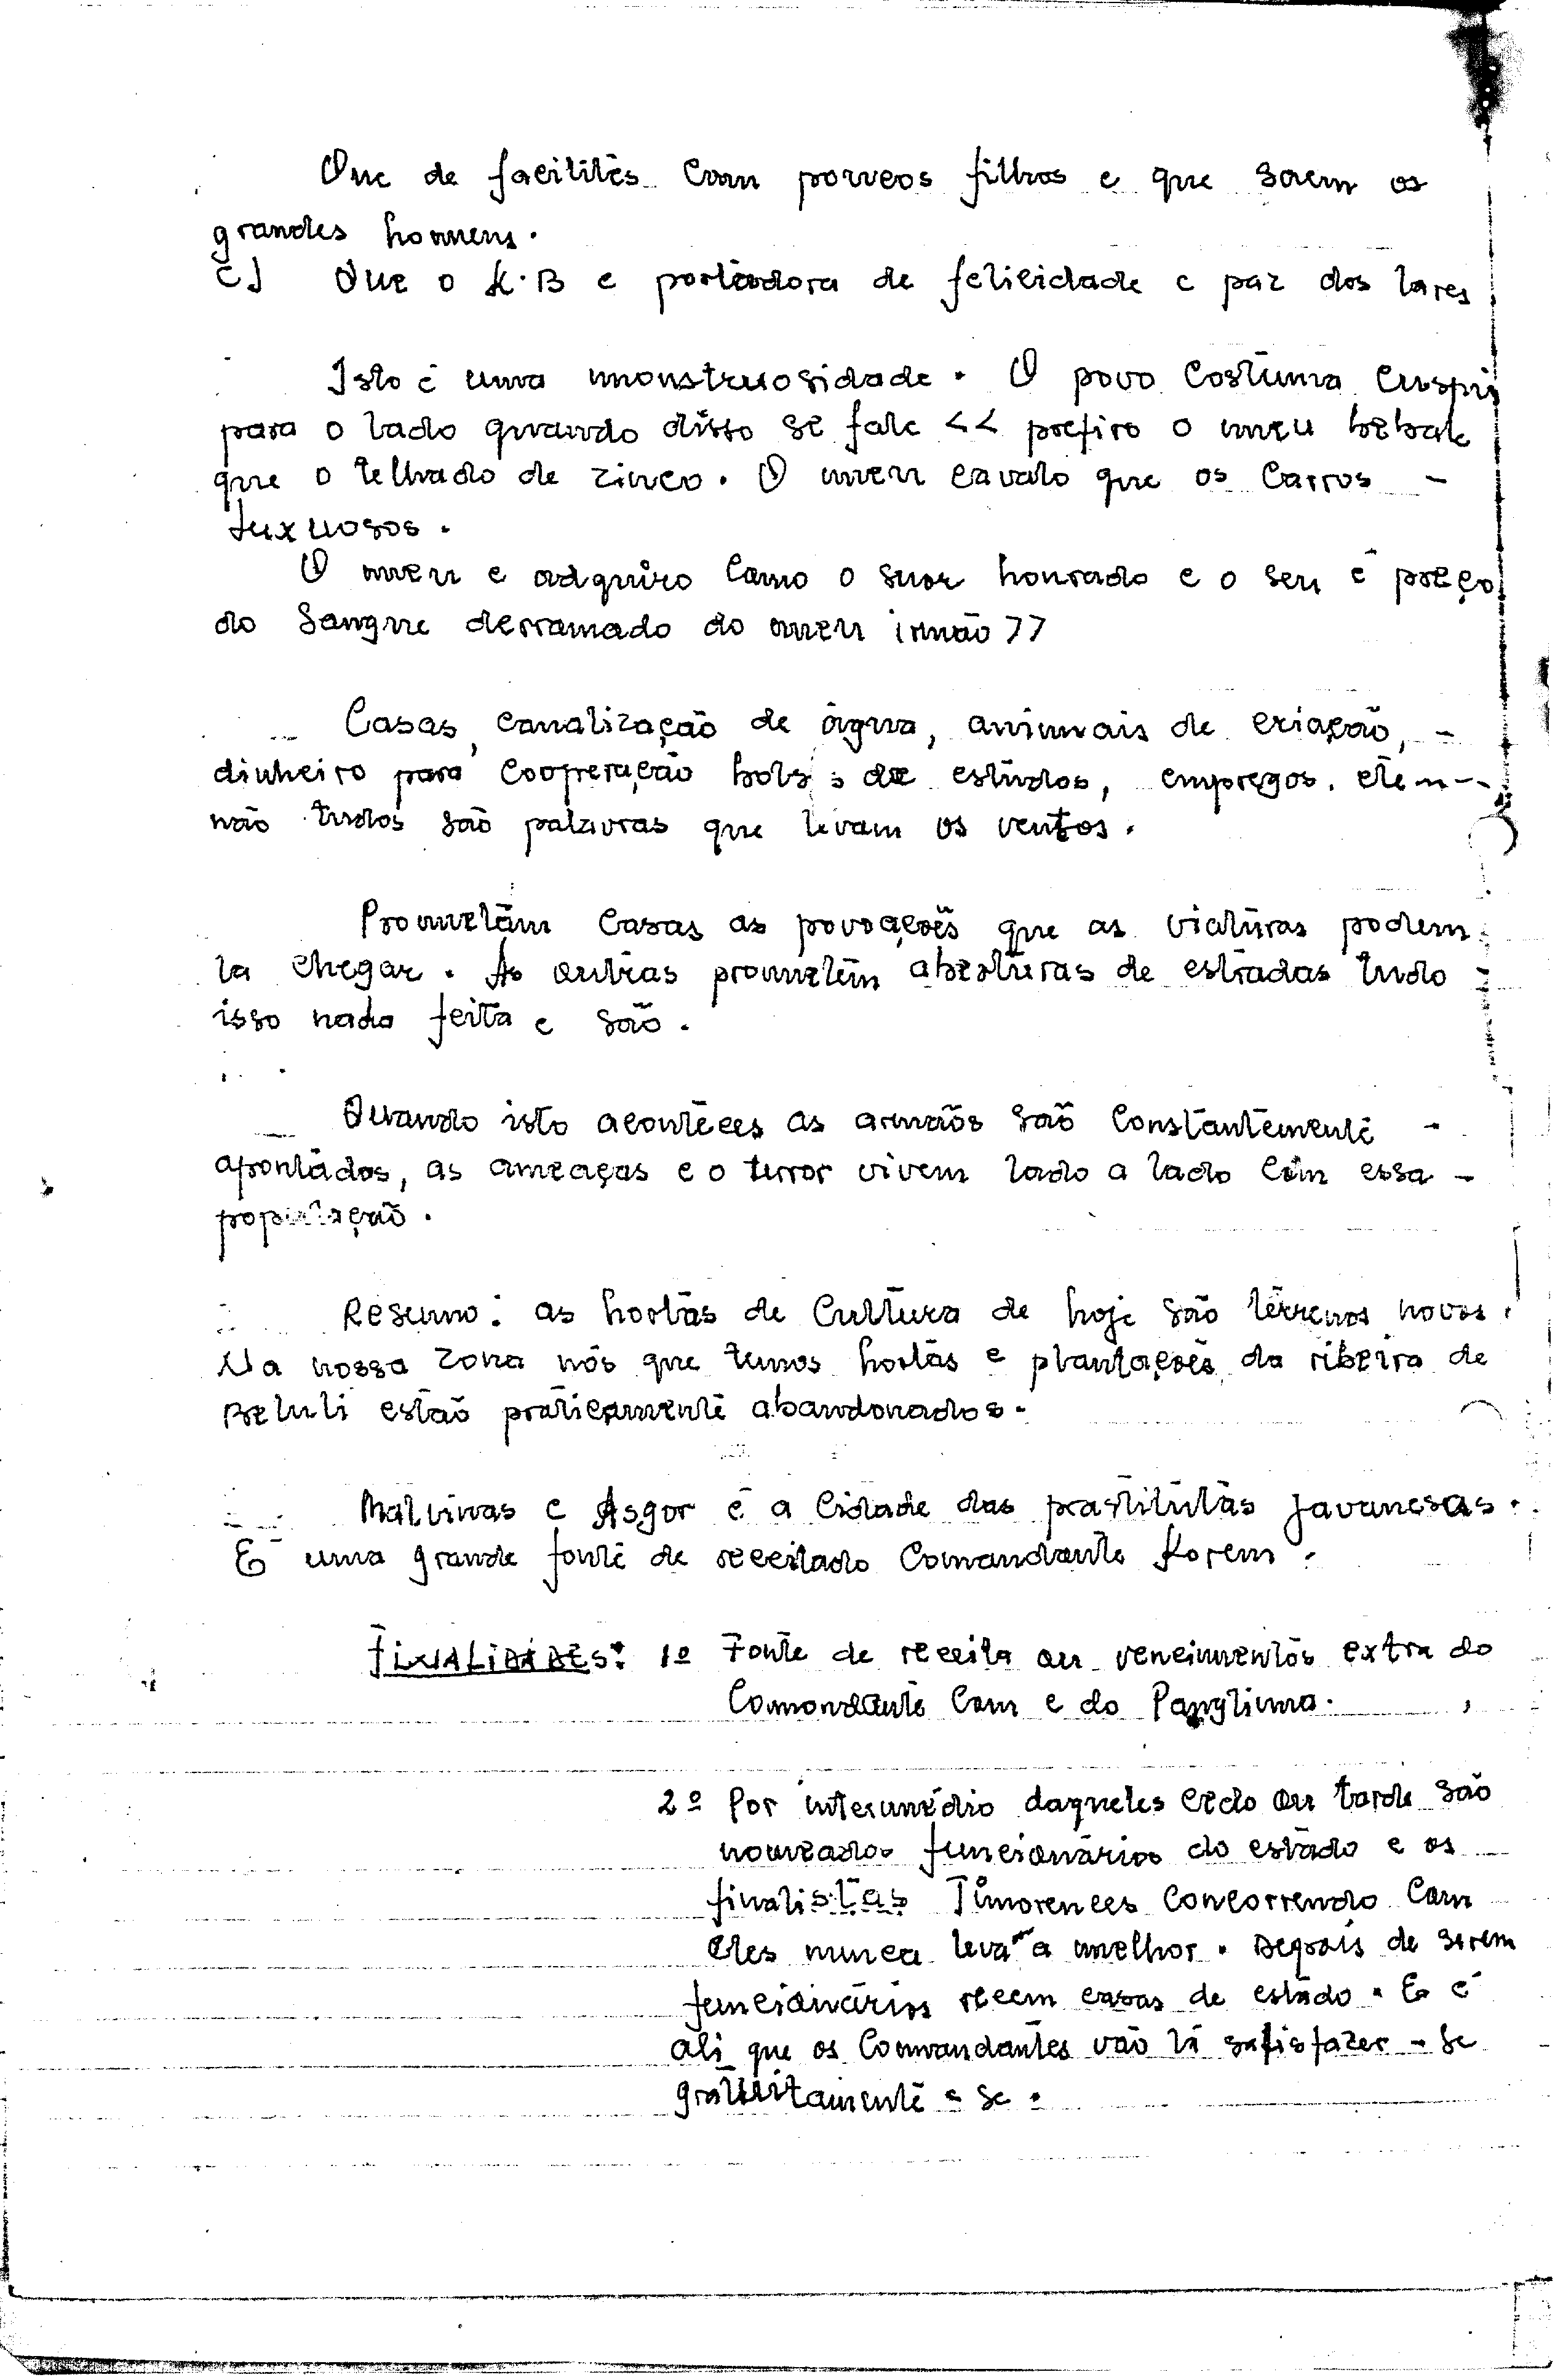 Que de facilitēs com poucos filhos e que saem os
grandes homens.
c) Que o K.B e portadora de felicidade e paz dos lares
Isto é uma monstruosidade. O povo costuma cuspir
para o lado quando disto se fale << prefiro o meu bebak
que o telhado de zinco. O meu cavalo que os carros -
luxuosos.
O meu e adquiro como o suor honrado e o seu é preço
do sangue derramado do meu irmão >>
Casas, canalização de água, animais de criação, -
dinheiro para cooperação bolsas de estudos, empregos, etc
não tudos são palavras que levam os ventos.
Prometām casas as povoações que as viaturas podem
la chegar. As outras prometēm aberturas de estradas tudo -
isso nada feita e são.
Quando isto acontēces as armãos são constantemente -
apontādos, as ameaças e o terror vivem lado a lado com essa -
população.
Resumo: as hortas de cultura de hoje são tērrenos novos.
Na nossa zona nós que temos hortas e plantações da ribeira de
Beluli estão praticamente abandonados.
Malvinas e Asgor é a cidade das prastitutas javanesas.
É uma grande fonte de receitado comandante Korem.
FINALIDADES: 1º Fonte de receita ou vencimentos extra do
Comondante com e do Panglima.
2º Por intermédio daqueles cedo ou tarde são
nomeados funcionários do estado e os
finalistas Timorences concorrendo com
eles nunca leva a melhor. Depois de serem
funcionários receem casas de estado. E é
ali que os Comandantes vão lá satisfazer - se
gratuitamente - se.